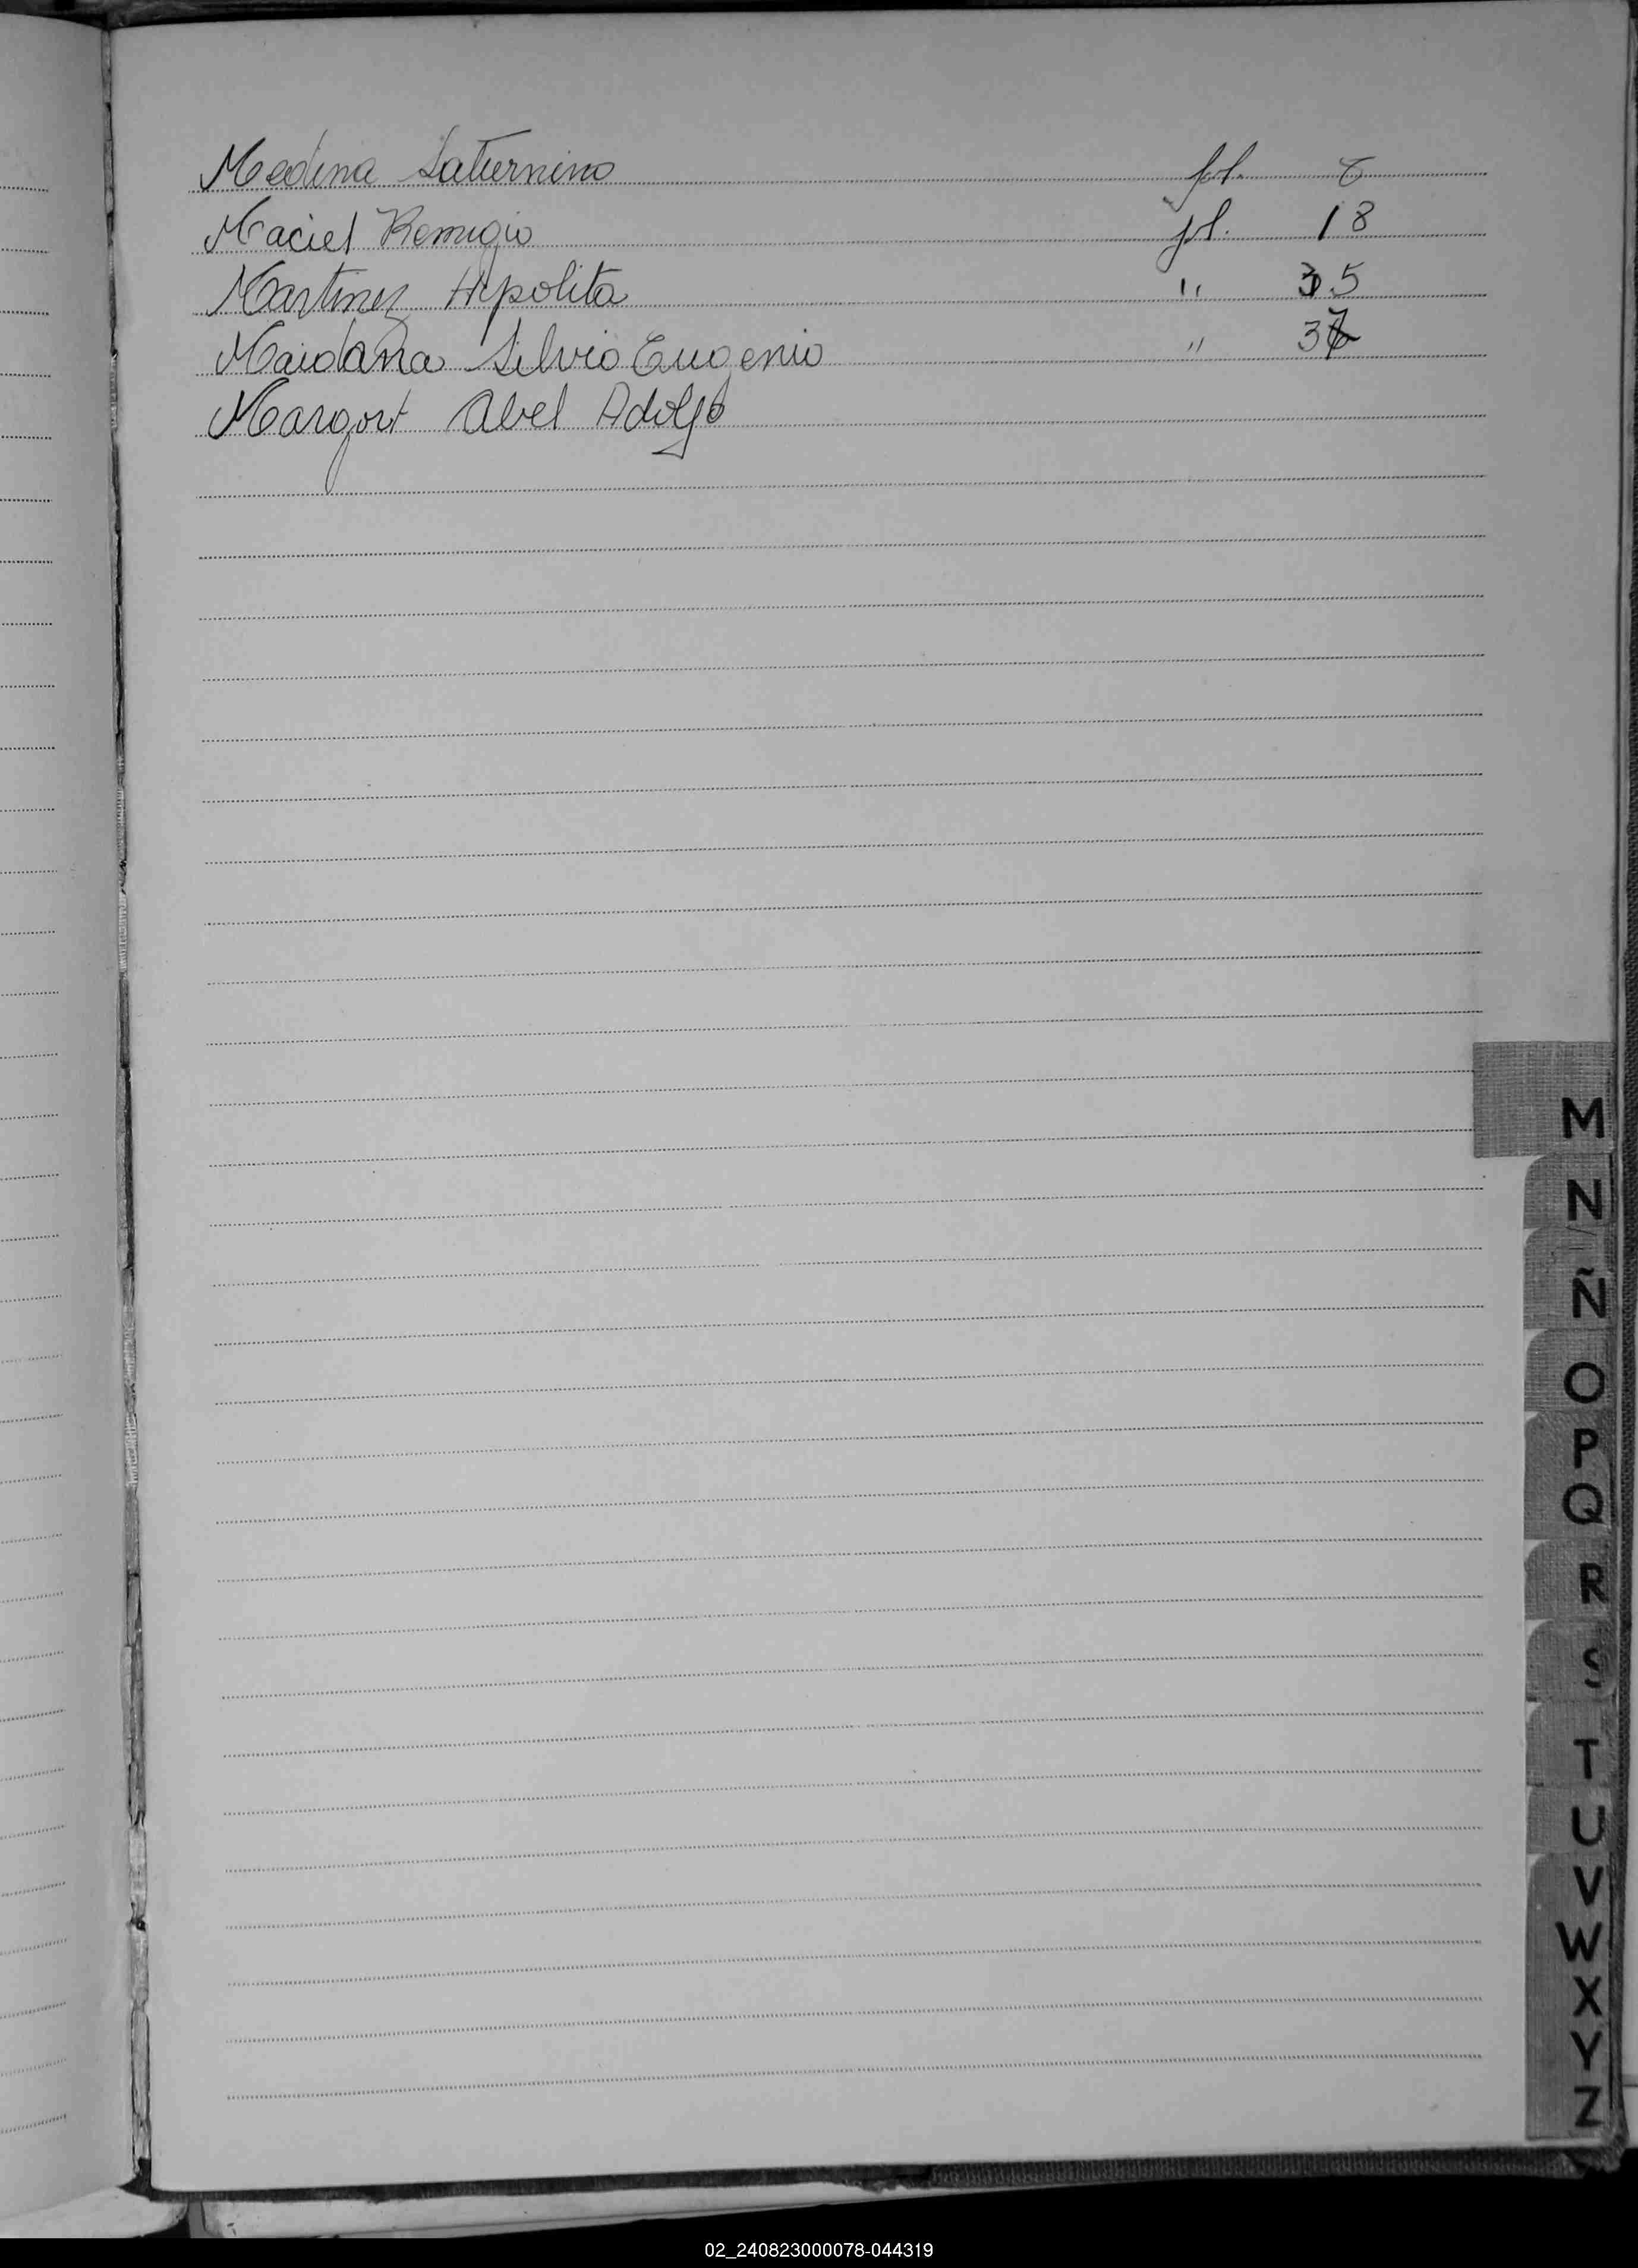 Medina Saturnino fol. 6
Maciel Remigio fol. 18
Martinez Hipolita " 35
Maidana Silvio Eugenio " 37
Abel Adolfo
M
N
Ñ
O
P
Q
R
S
T
U
V
W
X
Y
Z
02_240823000078-044319